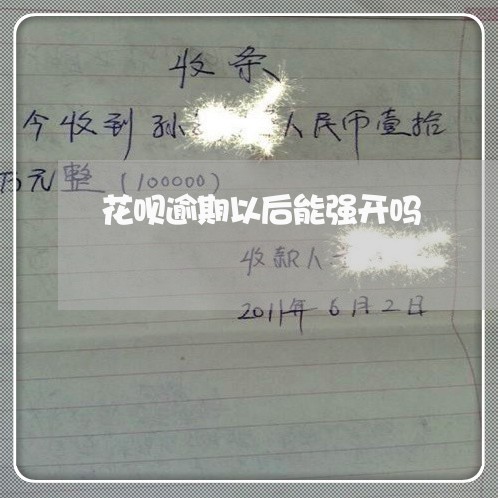 收条
今收到孙 人民币壹拾
万元整（100000）
花呗逾期以后能强开吗
收款人
2011年6月2日